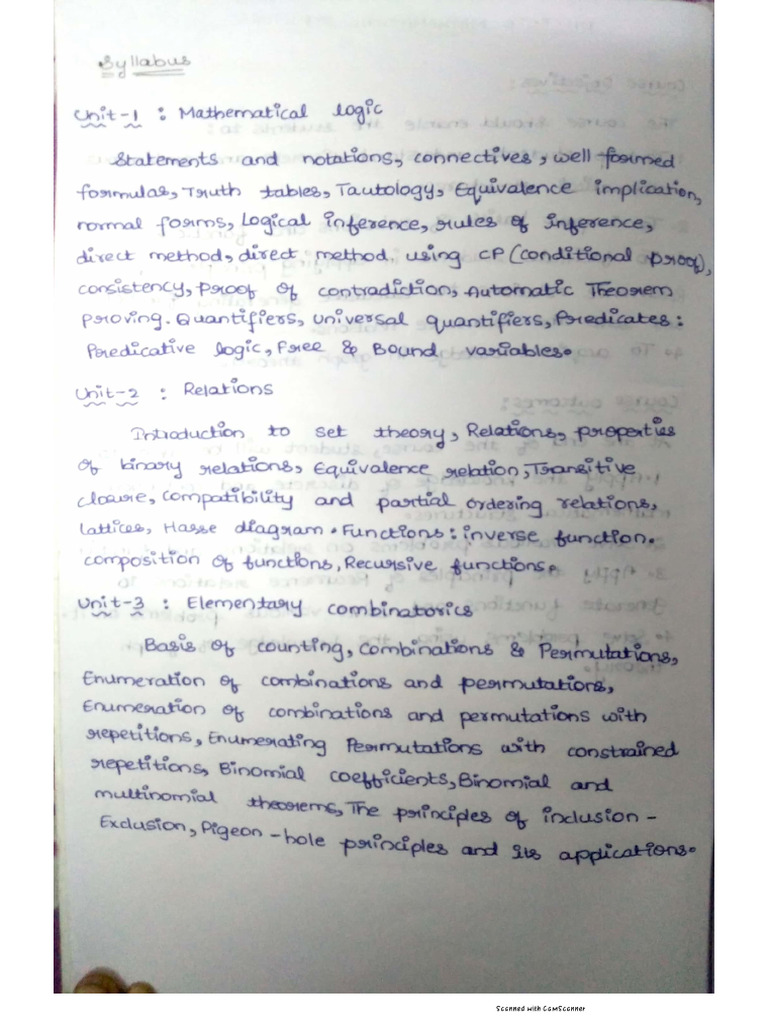 Syllabus
Unit-1 : Mathematical logic
Statements and notations, connectives, well formed
formulas, Truth tables, Tautology, Equivalence implication,
normal forms, Logical inference, rules of inference,
direct method, direct method using CP (conditional proof),
consistency, proof of contradiction, Automatic Theorem
proving. Quantifiers, universal quantifiers, Predicates:
Predicative logic, Free & Bound variables.
Unit-2 : Relations
Introduction to set theory, Relations, properties
of binary relations, Equivalence relation, Transitive
closure, Compatibility and partial ordering relations,
Lattices, Hasse diagram. Functions: inverse function.
composition of functions, Recursive functions.
Unit-3 : Elementary combinatorics
Basis of counting, Combinations & Permutations,
Enumeration of combinations and permutations,
Enumeration of combinations and permutations with
repetitions, Enumerating Permutations with constrained
repetitions, Binomial coefficients, Binomial and
multinomial theorems, The principles of inclusion -
Exclusion, Pigeon - hole principles and its applications.
Scanned with CamScanner